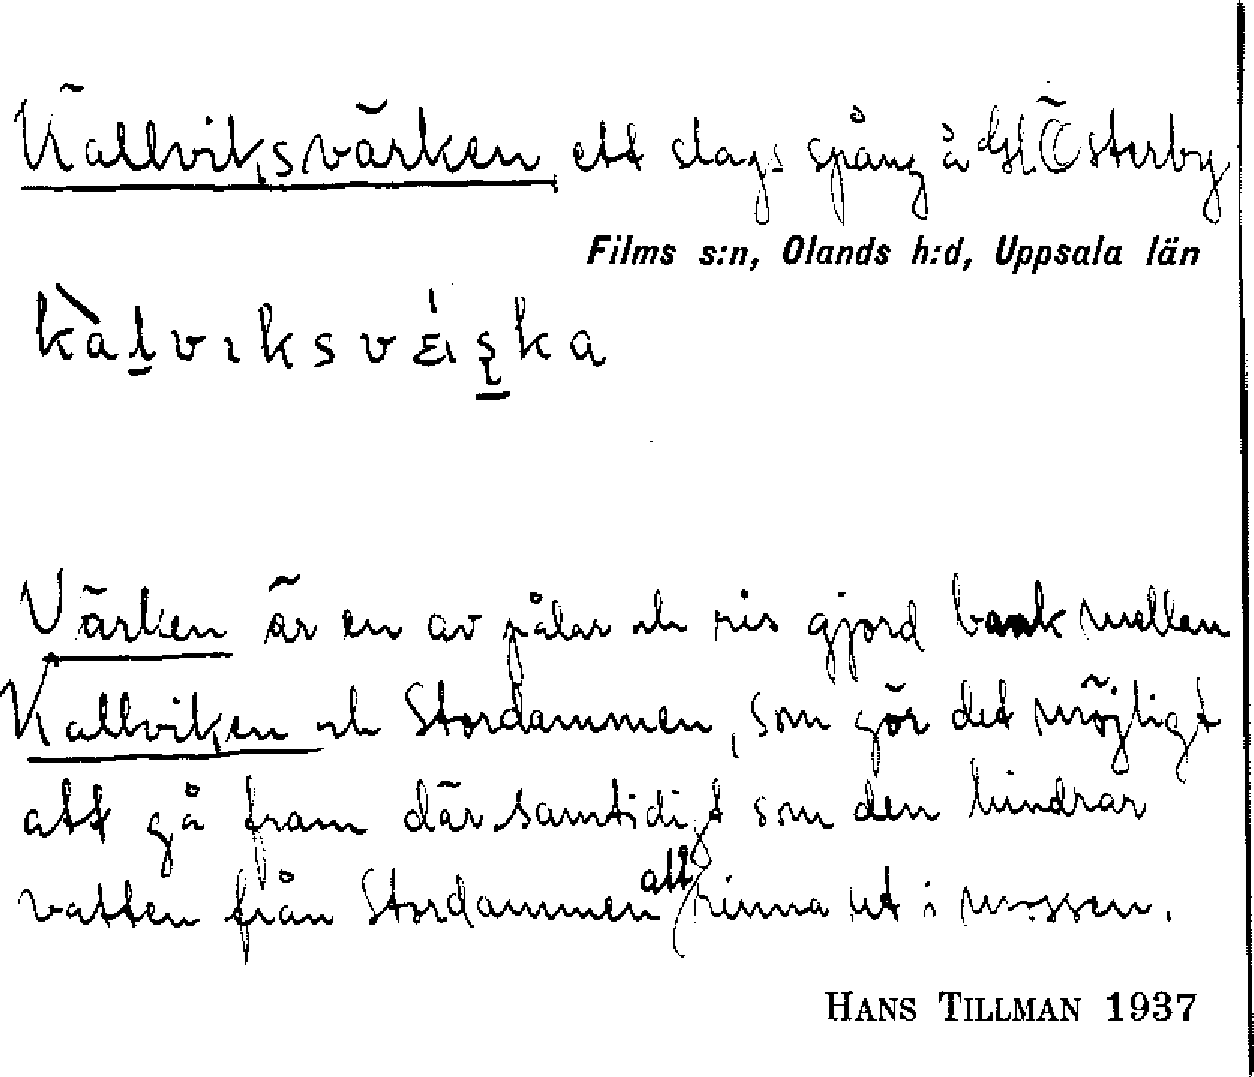 Kallviksvärken ett slags spång å Gl. Österby
Films s:n, Olands h:d, Uppsala län
kàlvıksvέıska
Värken är en av pålar och ris gjord bank mellan
Kallviken och Stordammen, som gör det möjligt
att gå fram där samtidigt som den hindrar
vatten från Stordammen att rinna ut i mossen.
HANS TILLMAN 1937